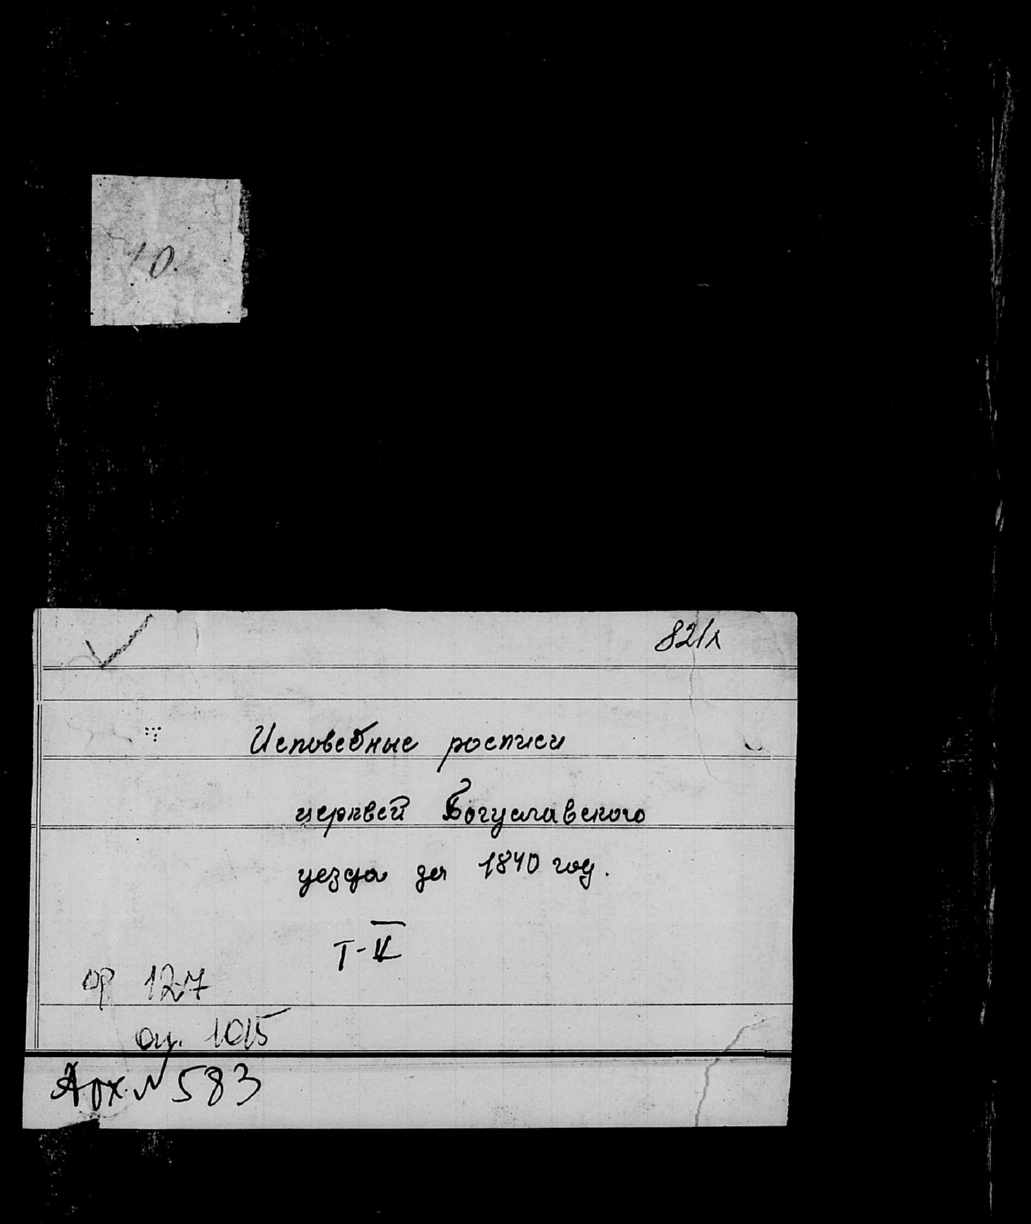 10.
821л
Исповедные росписи
церквей Богуславского
уезда за 1840 год.
Т-V
ор 127
оп. 1015
Арх. № 583